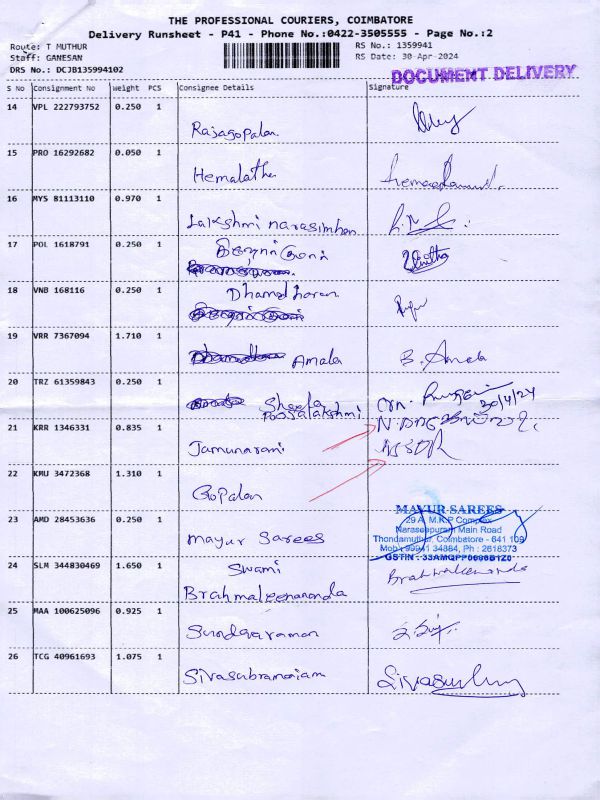 THE PROFESSIONAL COURIERS, COIMBATORE
Delivery Runsheet - P41 - Phone No.:0422-3505555 - Page No.:2
Route: T MUTHUR RS No.: 1359941
Staff: GANESAN RS Date: 30-Apr-2024
DRS No.: DCJB135994102
DOCUMENT DELIVERY
S No Consignment No Weight PCS Consignee Details Signature
14 VPL 222793752 0.250 1
Rajagopalan
15 PRO 16292682 0.050 1
Hemalatha
16 MYS 81113110 0.970 1
Lakshmi narasimhan
17 POL 1618791 0.250 1
18 VNB 168116 0.250 1
Dhamodharan
19 VRR 7367094 1.710 1
Amala B. Amala
20 TRZ 61359843 0.250 1
Sheela 30/4/24
Poojalakshmi
21 KRR 1346331 0.835 1
Jamunarani
22 KMU 3472368 1.310 1
Gopalan
23 AMD 28453636 0.250 1
Mayur Sarees
MAYUR SAREES
29 A, M.K.P Complex
Naraseepuram Main Road
Thondamuthur, Coimbatore - 641 109
Mob : 99941 34884, Ph : 2618373
24 SLM 344830469 1.650 1
Swami
Brahmaleenananda
25 MAA 100625096 0.925 1
Sundararaman
26 TCG 40961693 1.075 1
Sivasubramaiam